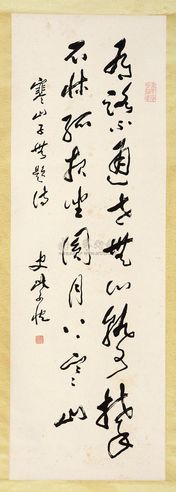 有路不通世無心孰可攀
石牀孤夜坐圓月上寒山
寒山子無題詩
史紫忱